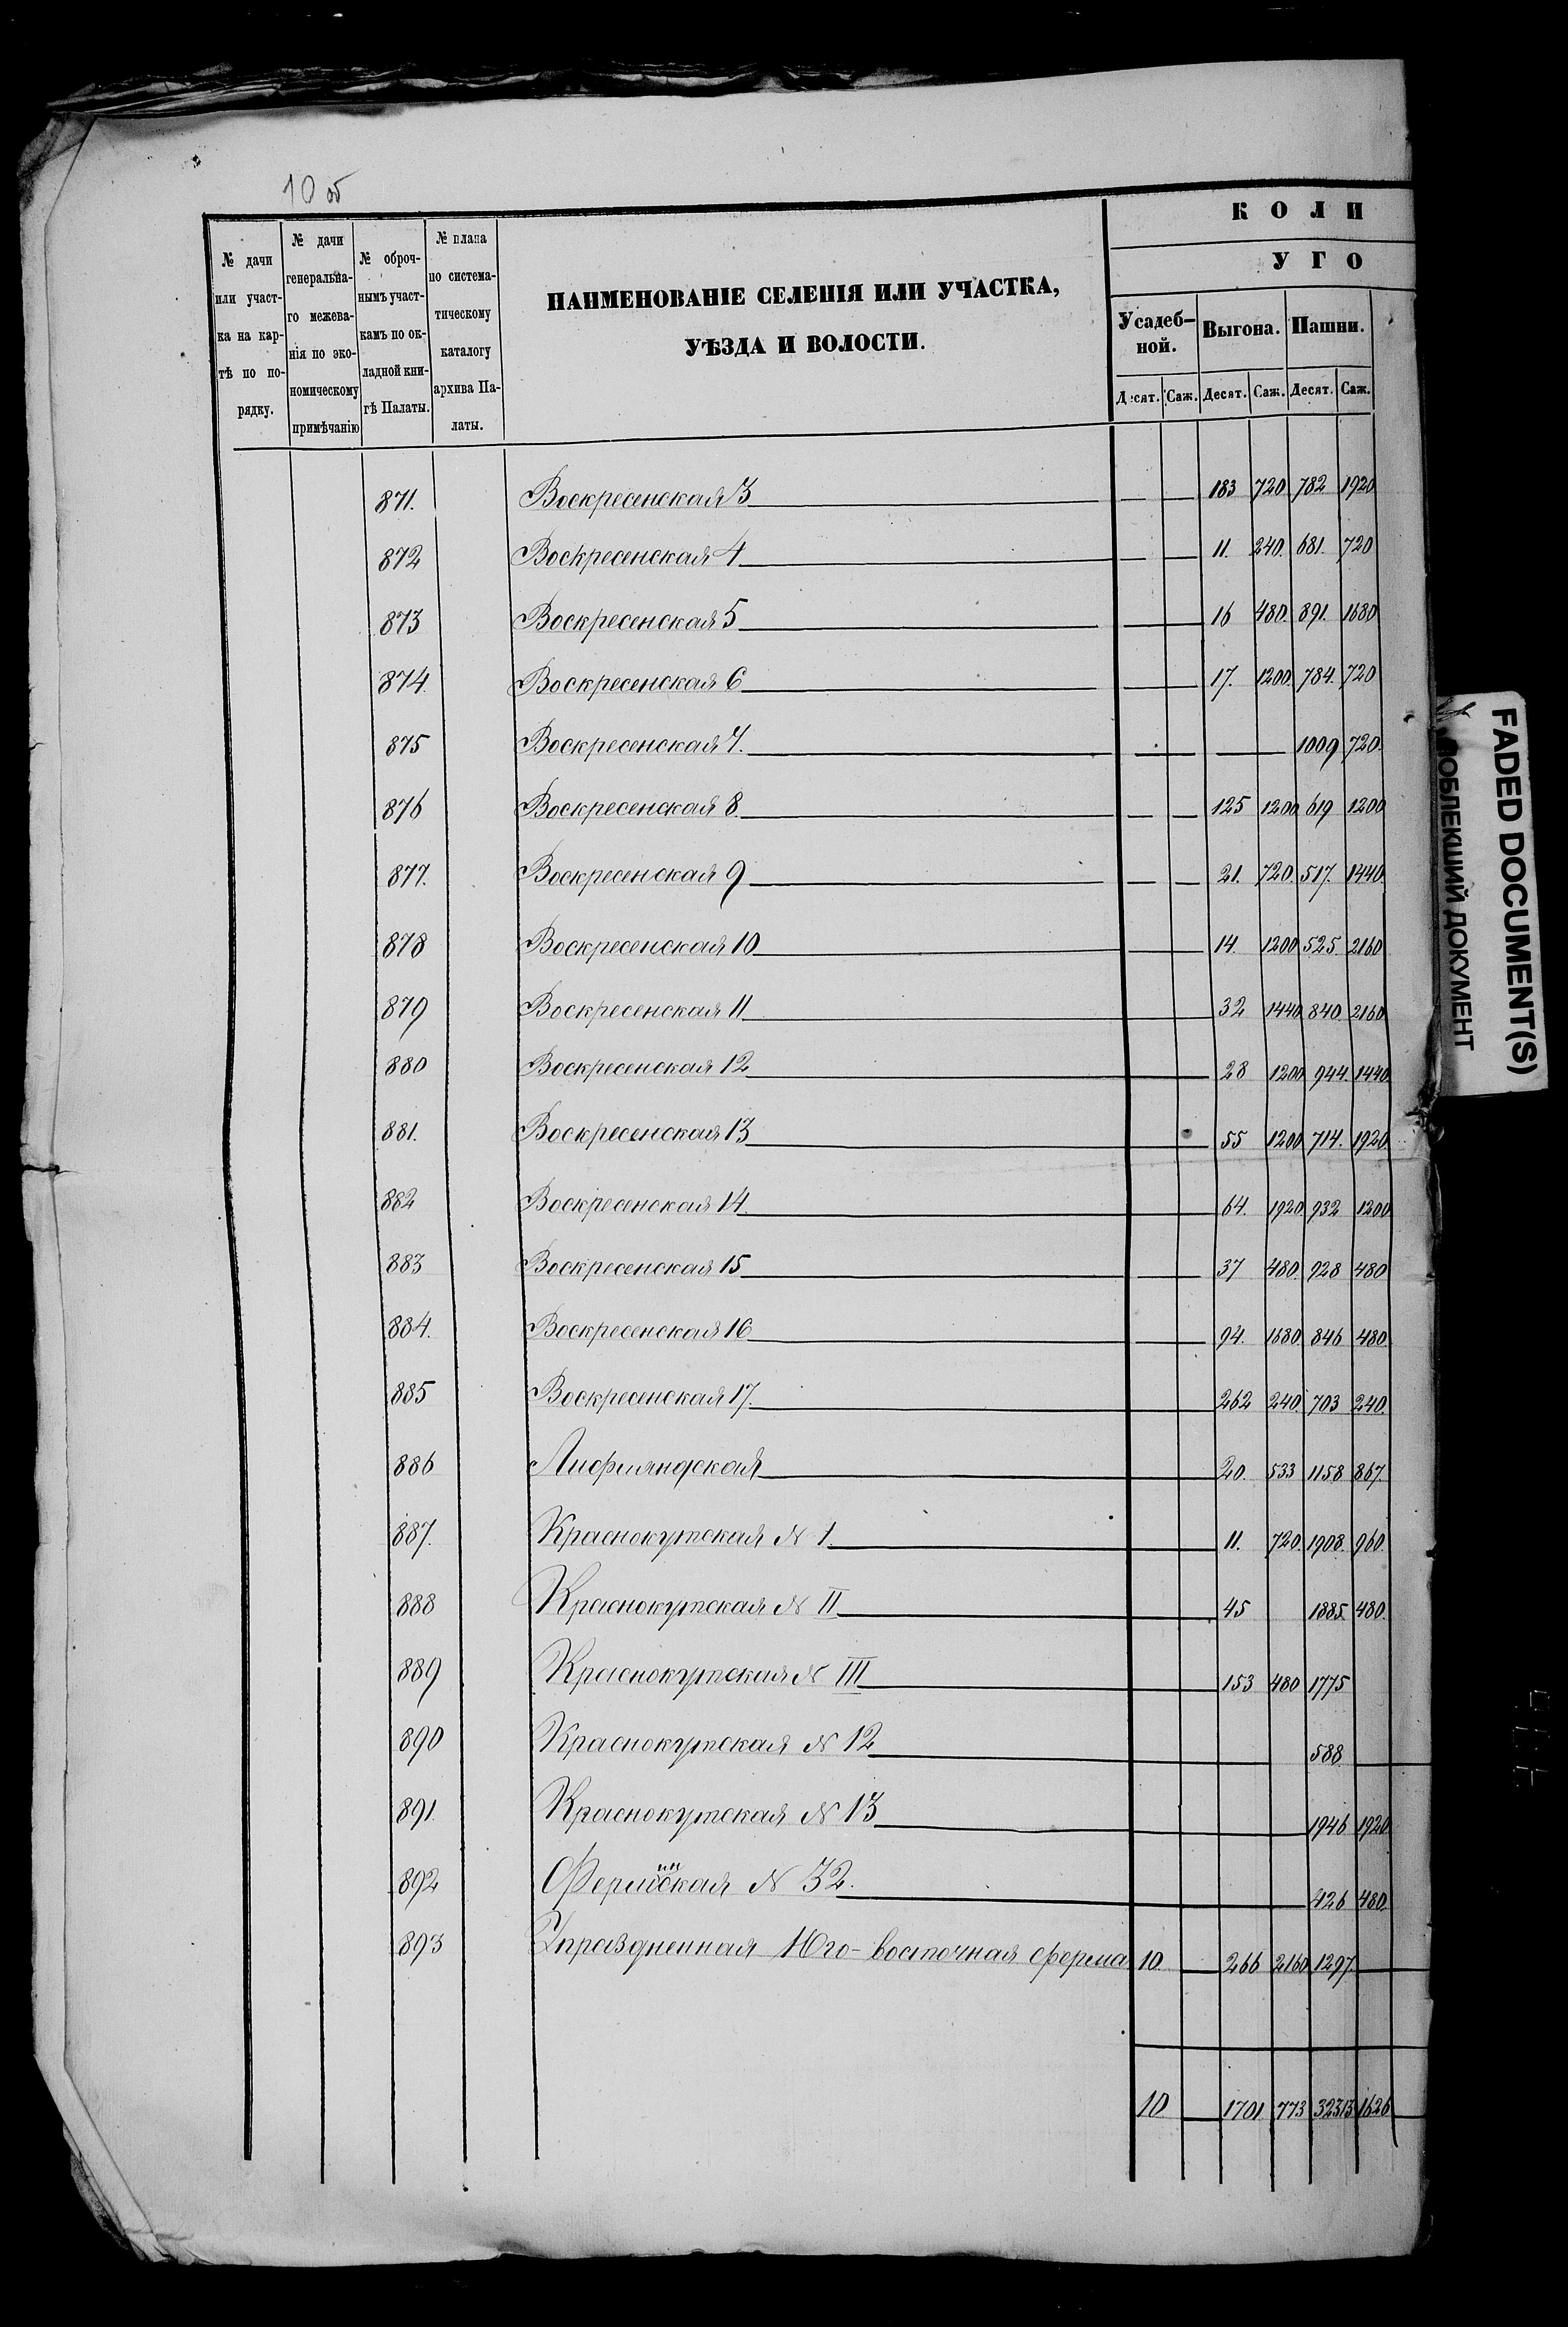 10 об
К О Л И
У Г О
№ дачи или участ-ка на кар-тѣ по по-рядку.
№ дачи генерально-го межева-нія по эко-номическому примѣчанію
№ оброч-нымъ участ-камъ по ок-ладной кни-гѣ Палаты.
№ плана по система-тическому каталогу архива Па-латы.
НАИМЕНОВАНІЕ СЕЛЕНІЯ ИЛИ УЧАСТКА,
УѢЗДА И ВОЛОСТИ.
Усадеб-ной. Выгона. Пашни.
Десят. Саж. Десят. Саж. Десят. Саж.
871. Воскресенская 3 — — 183 720 782 1920
872 Воскресенская 4 — — 11. 240. 681. 720
873 Воскресенская 5 — 16 480. 891. 1680
874. Воскресенская 6 — 17. 1200. 784. 720
875 Воскресенская 7. — — 1009 720.
876 Воскресенская 8 — — 125 1200 619 1200
877. Воскресенская 9 — — 21. 720. 517. 1440.
878 Воскресенская 10 — 14. 1200 525. 2160
879 Воскресенская 11 — 32 1440 840. 2160
880 Воскресенская 12 — 28 1200 944. 1440.
881. Воскресенская 13 — 55 1200 714. 1920
882 Воскресенская 14. — 64. 1920 932 1200
883 Воскресенская 15 — 37 480. 928 480
884. Воскресенская 16 — 94. 1680. 846 480.
885 Воскресенская 17. — 262 240. 703 240.
886 Лифляндская — 20. 533 1158 867.
887. Краснокутская № 1. — 11. 720. 1908. 960.
888 Краснокутская № II — 45 1885. 480.
889 Краснокутская № III — 153 480 1775
890 Краснокутская № 12 — 588. —
891. Краснокутская № 13 — 1946 1920
892 Ферминская № 32. — 426 480.
893 Упраздненная Юго-восточная ферма 10. — 266 2160 1297. —
10 — 1701 773 32313 1626
FADED DOCUMENT(S)
ПОБЛЕКШИЙ ДОКУМЕНТ